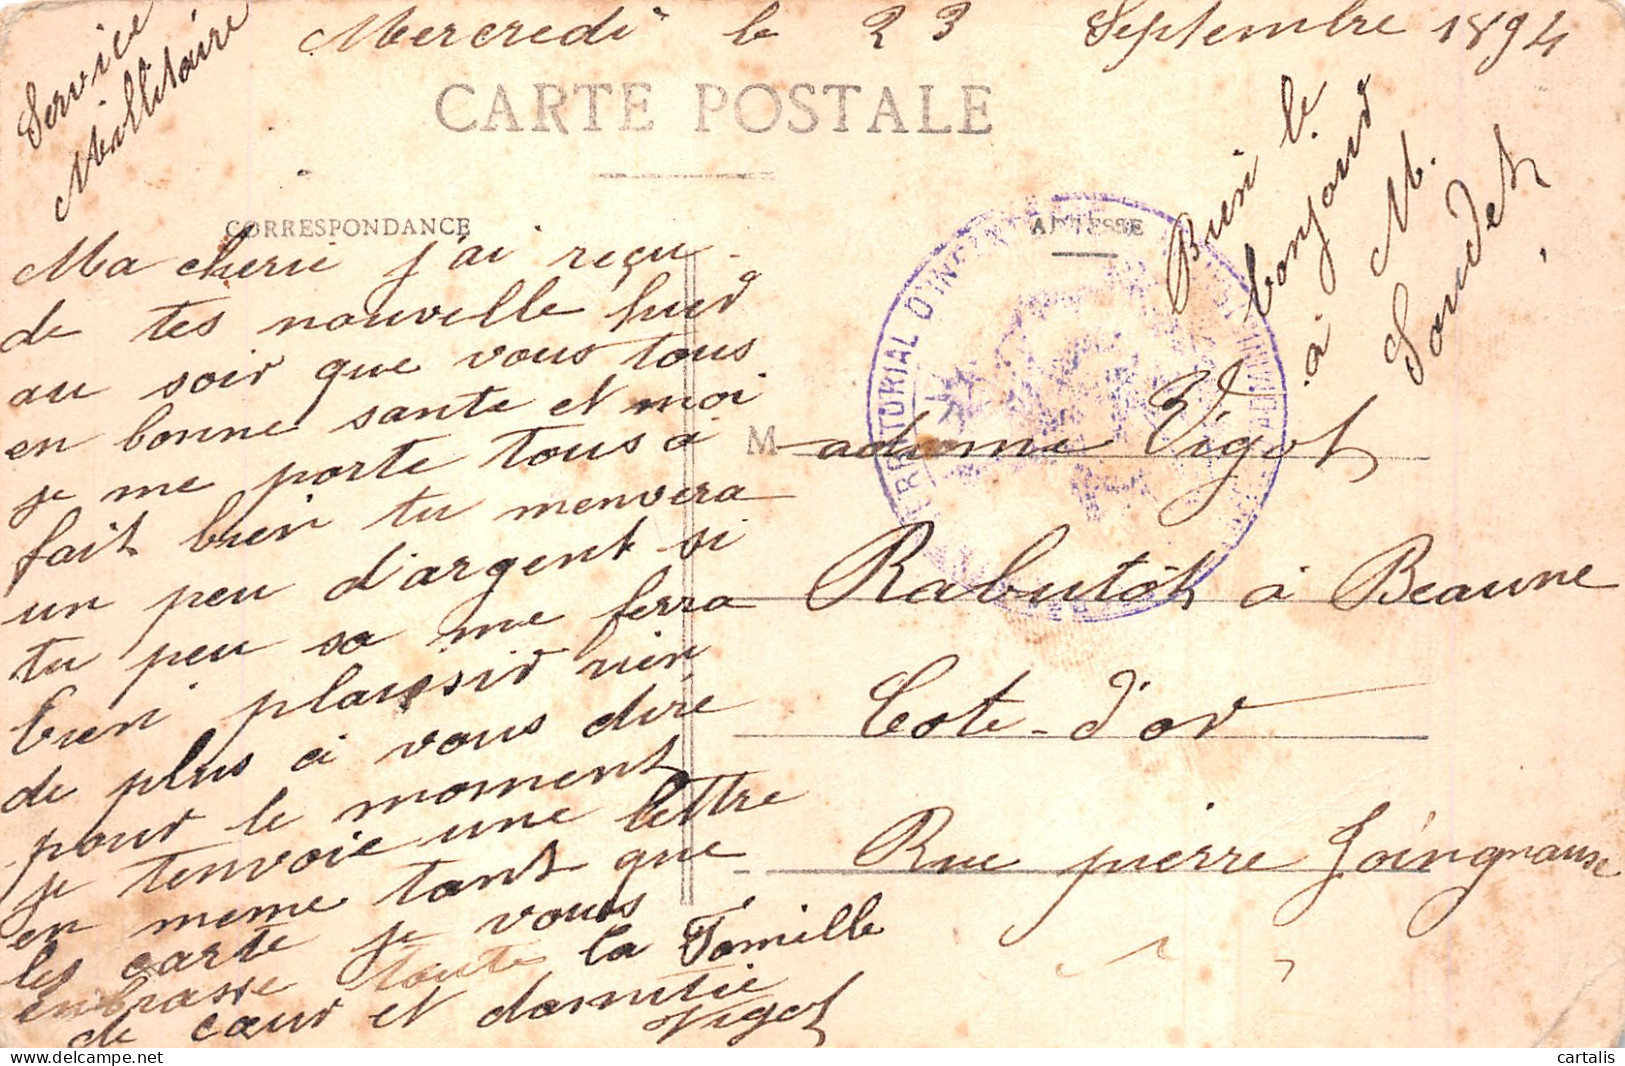 Service
Millitaire
Mercredi le 23 Septembre 1894
CARTE POSTALE
CORRESPONDANCE
ADRESSE
Ma cherie j'ai reçu
de tes nouvelle hier
au soir que vous tous
en bonne sante et moi
je me porte tous à
fait bien tu menvera
un peu d'argent si
tu peu sa me ferra
bien plaisir rien
de plus à vous dire
pour le moment
je tenvoie une lettre
en meme tant que
les carte je vous
enbrasse toute la Famille
de cœur et damitié
Vigot
Bien le
bonjour
à M.
Soudet
TERRITORIAL D'INF
Madame Vigot
Rabutôt à Beaune
Cote-d'or
Rue pierre Joingnause
cartalis